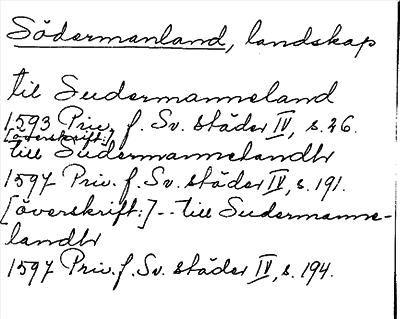 Södermanland, landskap
til Sudermanneland
1593 Priv. f. Sv. städer IV, s. 26.
[överskrift:]
till Sudermannelandh
1597 Priv. f. Sv. städer IV, s. 191.
[överskrift:] -- till Sudermanne-
landh
1597 Priv. f. Sv. städer IV, s. 194.